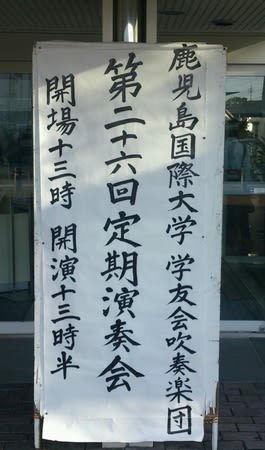 鹿児島国際大学 学友会吹奏楽団
第二十六回定期演奏会
開場十三時 開演十三時半